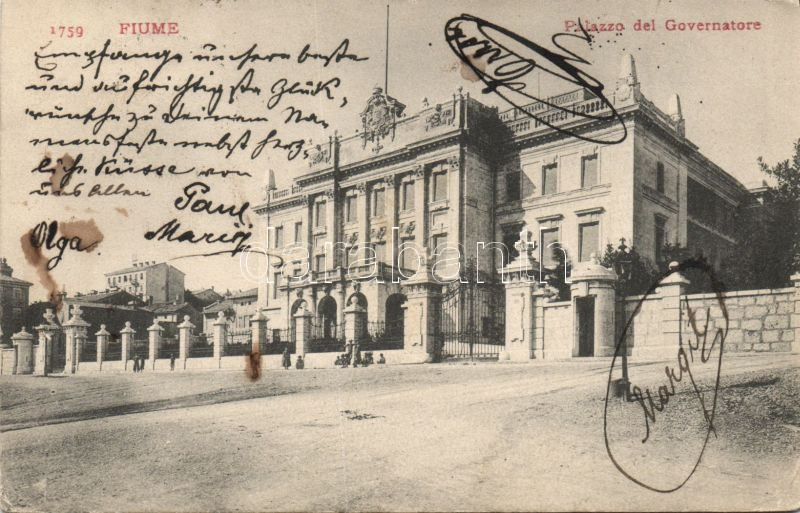 1759 FIUME
Palazzo del Governatore
Empfange unsern beste
und aufrichtigste Glück,
wünsche zu Deinem Na,
mensfeste nebst herz,
liche Küsse von
uns allen Paul
Olga Mariz
Margit
darabanth